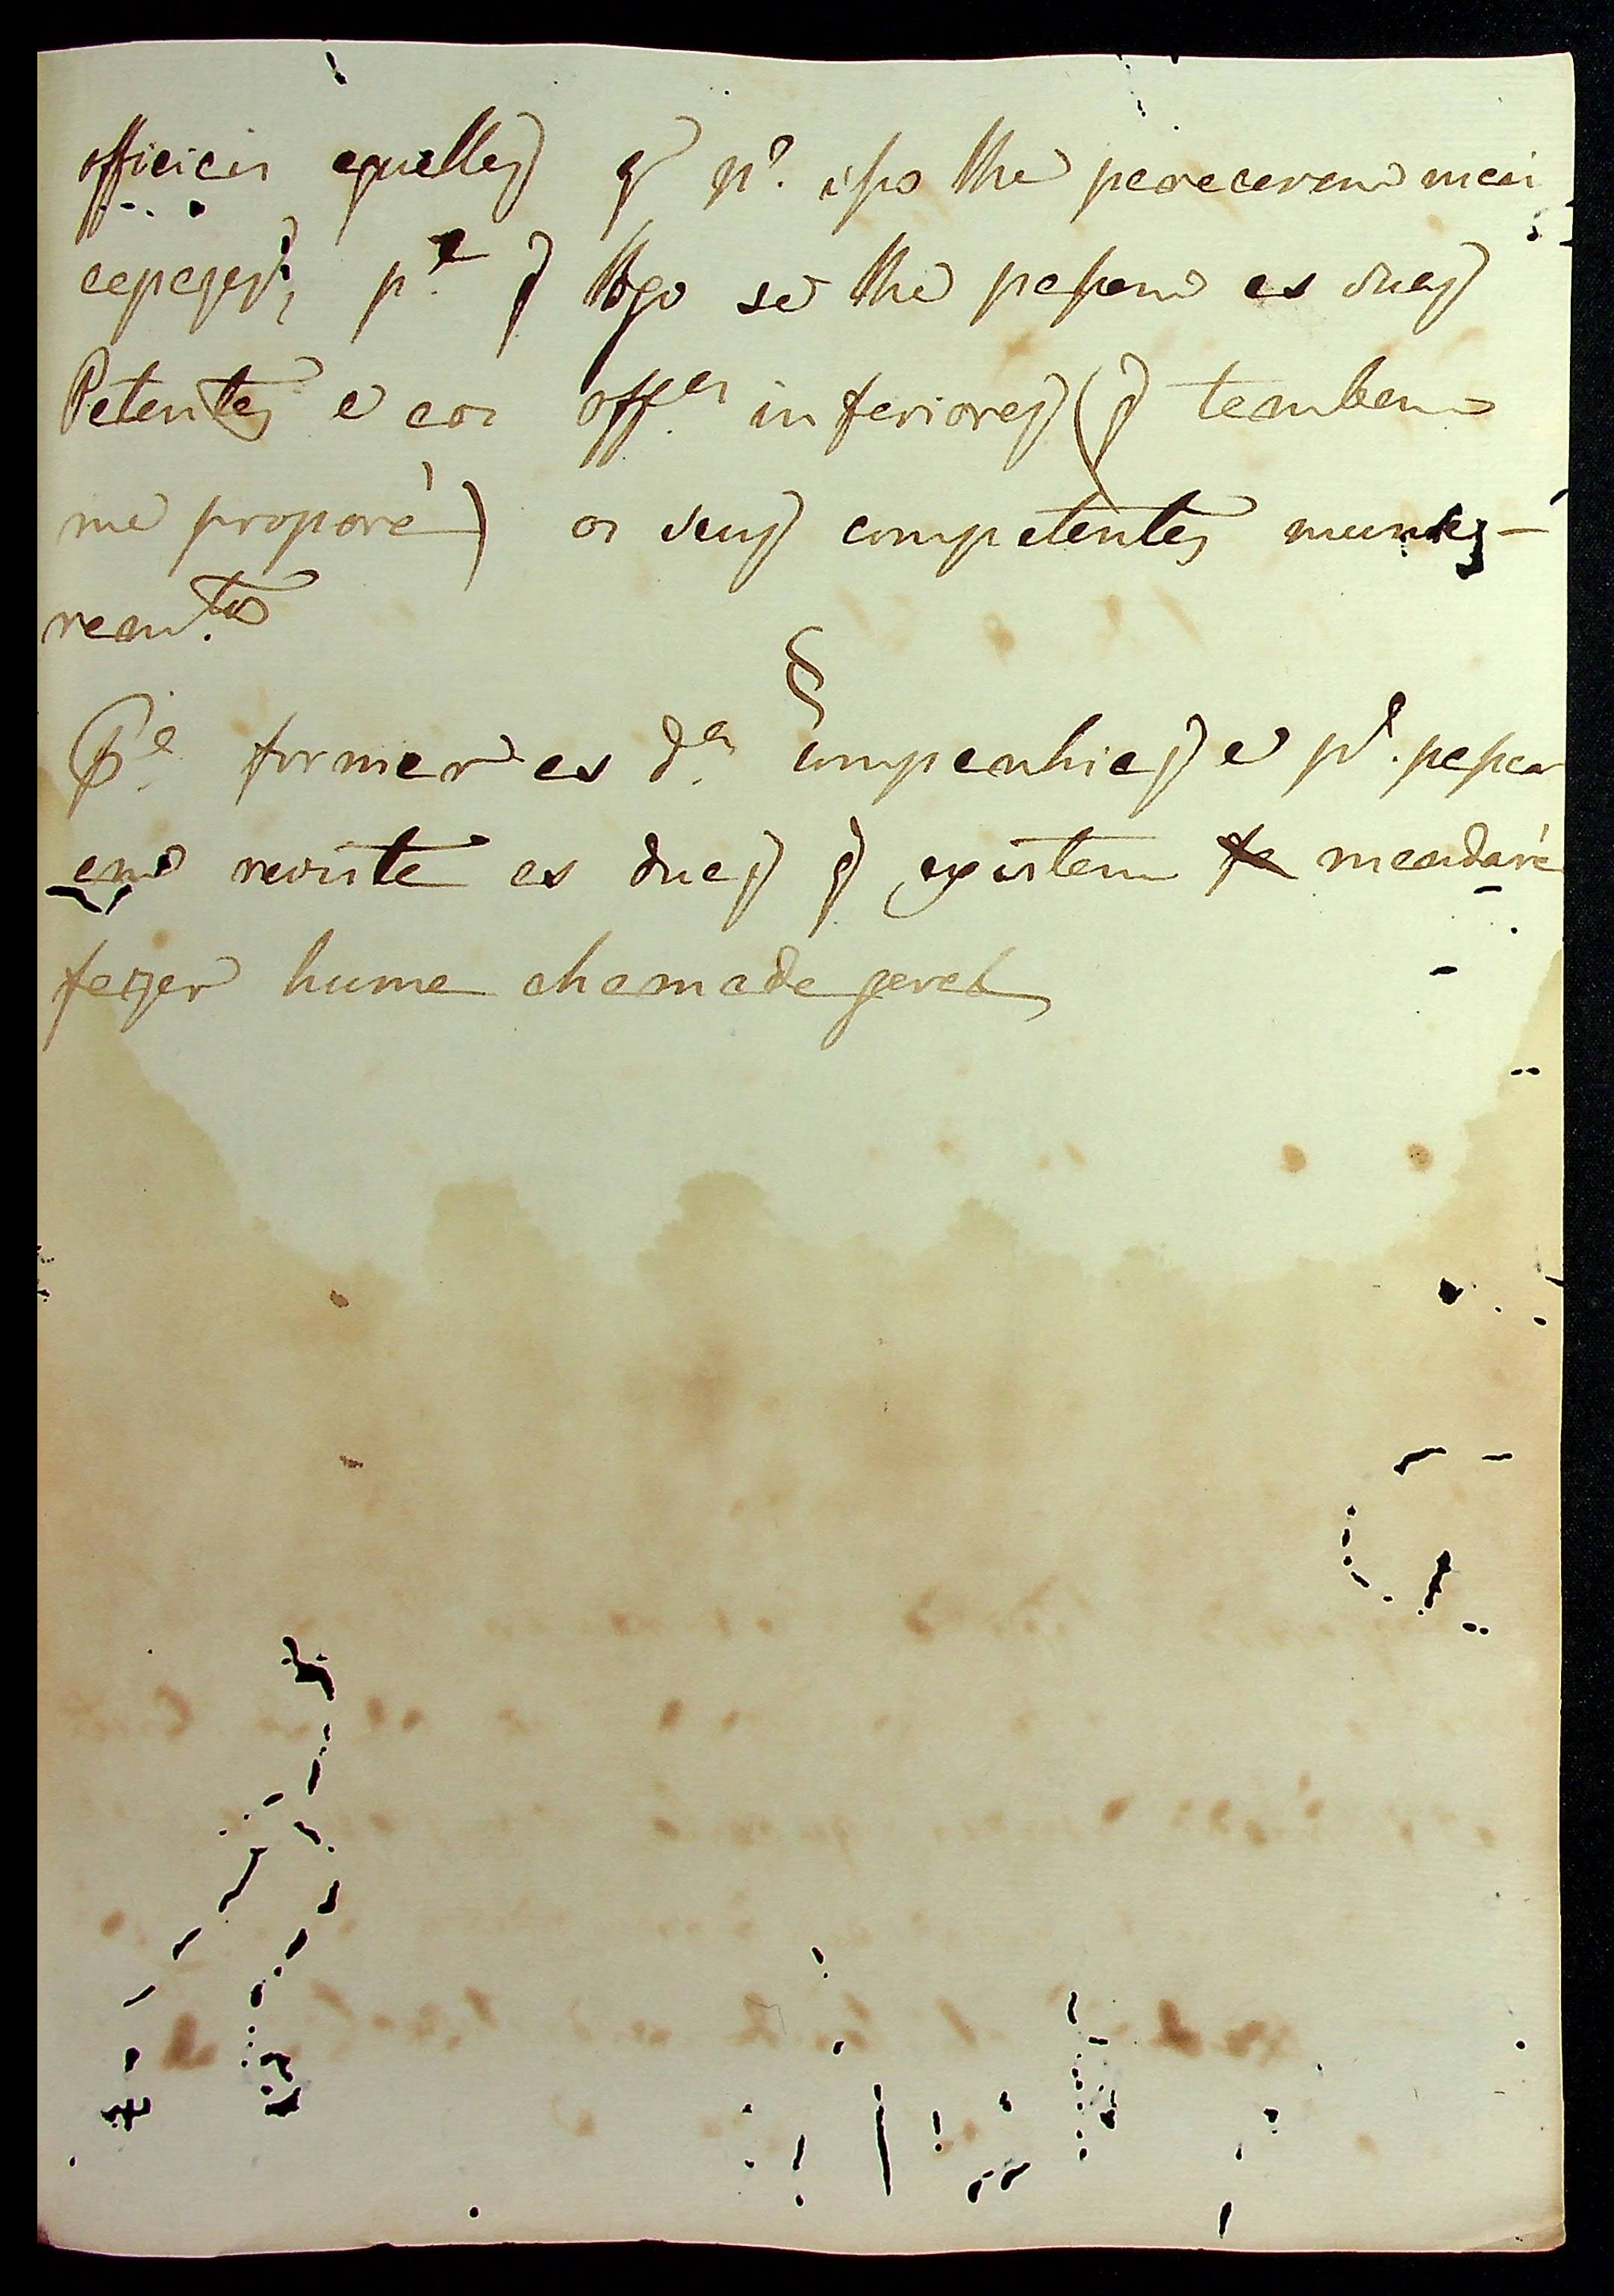 officiais aquelles q̃ p.ª isso lhe parecerem mais
capazes, p.ª q̃ logo se lhe passem as suas
Patentes e aos off.es inferiores (q̃ tambem
me proporá) os seus competentes
§
P.ª formar as d.as companhias e p.ª passar
em revista as duas q̃ existem mandará
fazer huma chamada geral